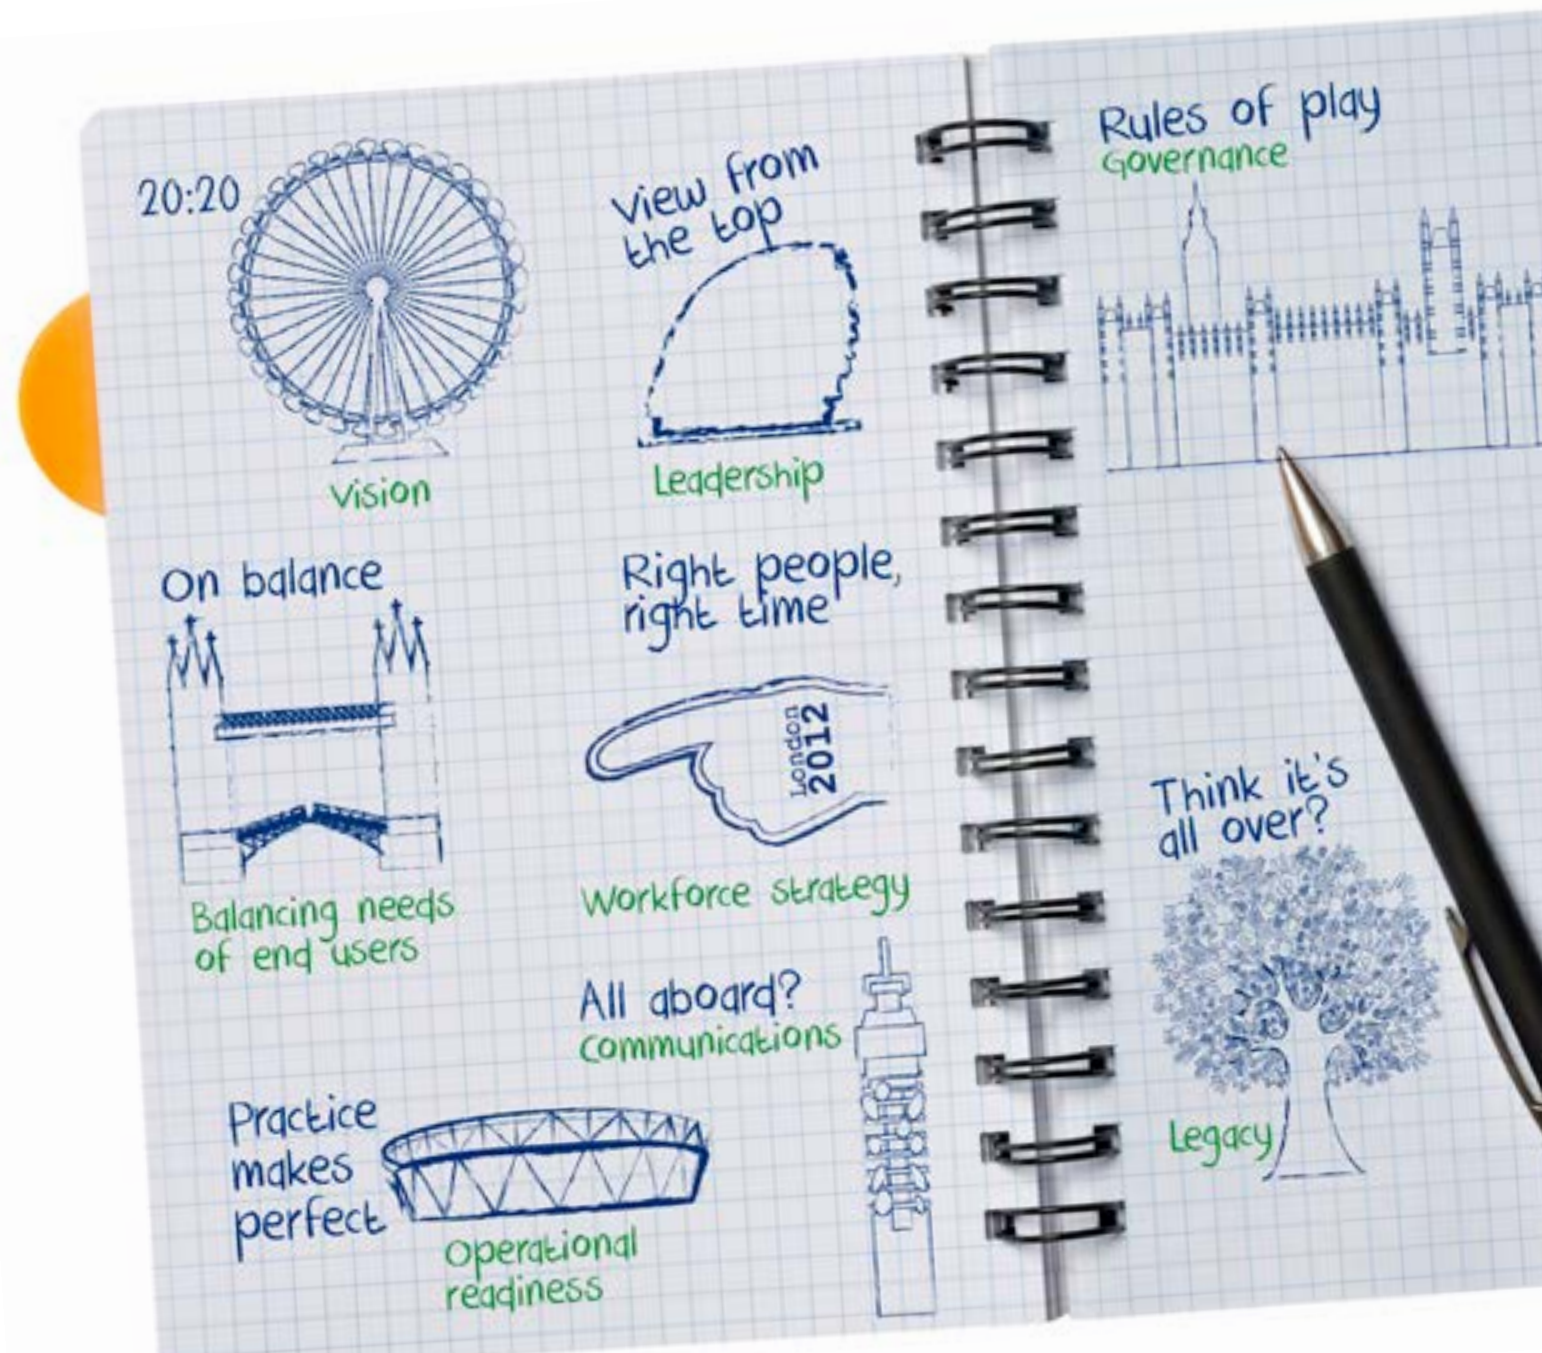 20:20
Vision
View from
the top
Leadership
On balance
Balancing needs
of end users
Right people,
right time
London
2012
Workforce strategy
All aboard?
Communications
Practice
makes
perfect
Operational
readiness
Rules of play
Governance
Think it's
all over?
Legacy